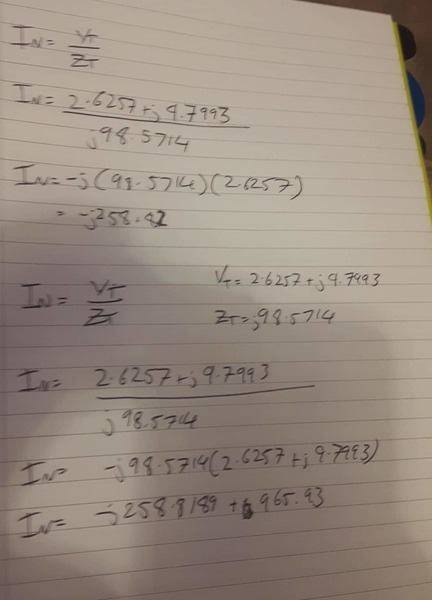 I_N = V_T
Z_T
I_N = 2.6257 + j 9.7993
j98.5714
I_N = -j(98.5714)(2.6257)
= -j258.82
I_N = V_T V_T = 2.6257 + j9.7993
Z_T Z_T = j98.5714
I_N = 2.6257 + j 9.7993
j98.5714
I_N = -j98.5714(2.6257 + j9.7993)
I_N = -j258.8189 + 965.93